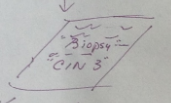 "Biopsy"
"CIN 3"